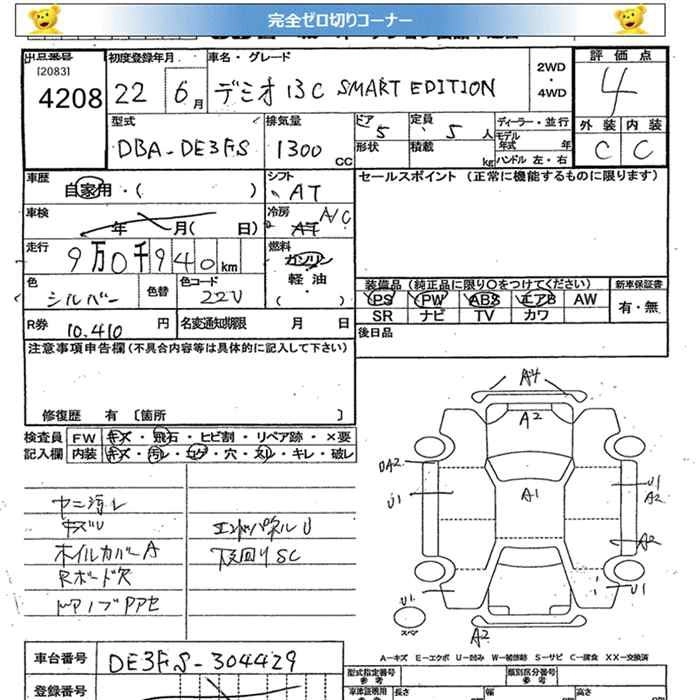 完全ゼロ切りコーナー
出品番号 初度登録年月 車名・グレード 評価点
[2083]
4208 22 6月 デミオ 13C SMART EDITION 2WD・4WD 4
型式 排気量 ドア 定員 ディーラー・並行 外装 内装
DBA-DE3FS 1300cc 5 5人 モデル年式 年 C C
形状 積載 kg ハンドル 左・右
車歴 シフト セールスポイント (正常に機能するものに限ります)
自家用・( ) AT
車検 冷房
年 月( 日) A/C
走行 燃料
9万0千940km ガソリン
軽油
・( )
色 色替 色コード 装備品 (純正品に限り〇をつけてください) 新車保証書
シルバー 22V PS PW ABS エアB AW 有・無
SR ナビ TV カワ
R券 10.410円 名変通知期限 月 日 後日品
注意事項申告欄(不具合内容等は具体的に記入して下さい)
修復歴 有 〔箇所 〕
検査員 FW キズ・飛石・ヒビ割・リペア跡・×要
記入欄 内装 キズ・汚レ・コゲ・穴・スリ・キレ・破レ
ヤニ汚レ
キズU
ホイルカバーA
Rボード欠
ドアノブPアセ
エンドパネルU
下回りSC
A4
A2
DA2
U1
A1
U1
A2
A2
U1
U1
スペア
A2
A-キズ E-エクボ U-凹み W-補修跡 S-サビ C-腐食 XX-交換済
車台番号 DE3FS-304429
登録番号
型式指定番号 類別区分番号
参考 参考
車検証明用 長さ 幅 高さ